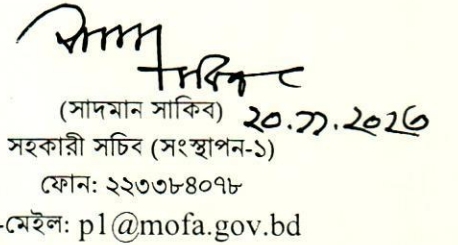 (সাদমান সাকিব) ২০.১১.২০২৩
সহকারী সচিব (সংস্থাপন-১)
ফোন: ২২৩৩৮৪০৭৮
-মেইল: p1@mofa.gov.bd